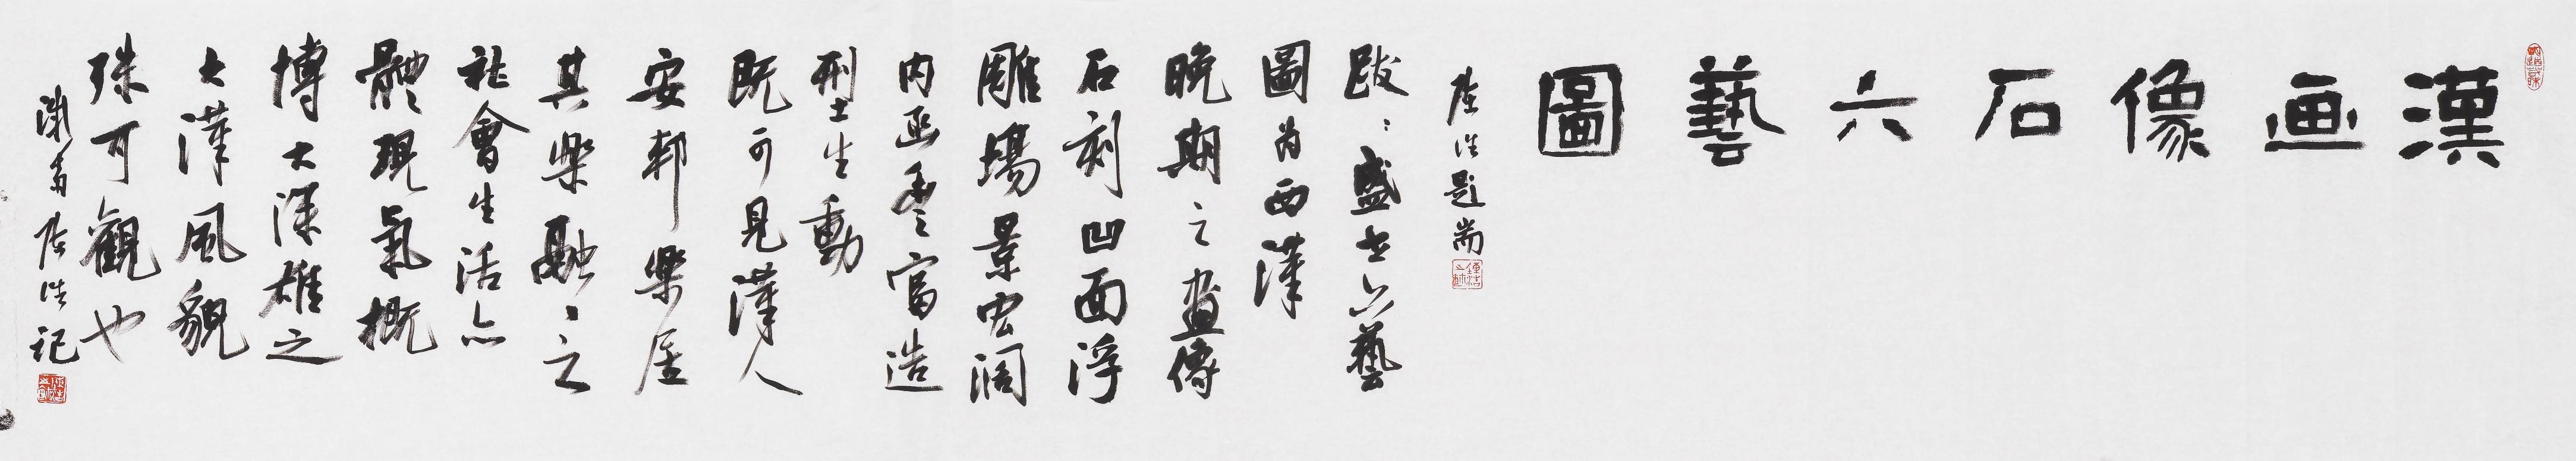 漢画像石六藝圖
題耑
跋：盛世六藝
圖为西漢
晚期之畫傳
石刻凹面浮
雕場景宏阔
内函丰富造
型生動
既可見漢人
安邦樂居
其樂融融之
社會生活亦
體現氣概
博大深雄之
大漢風貌
殊可觀也
浩記